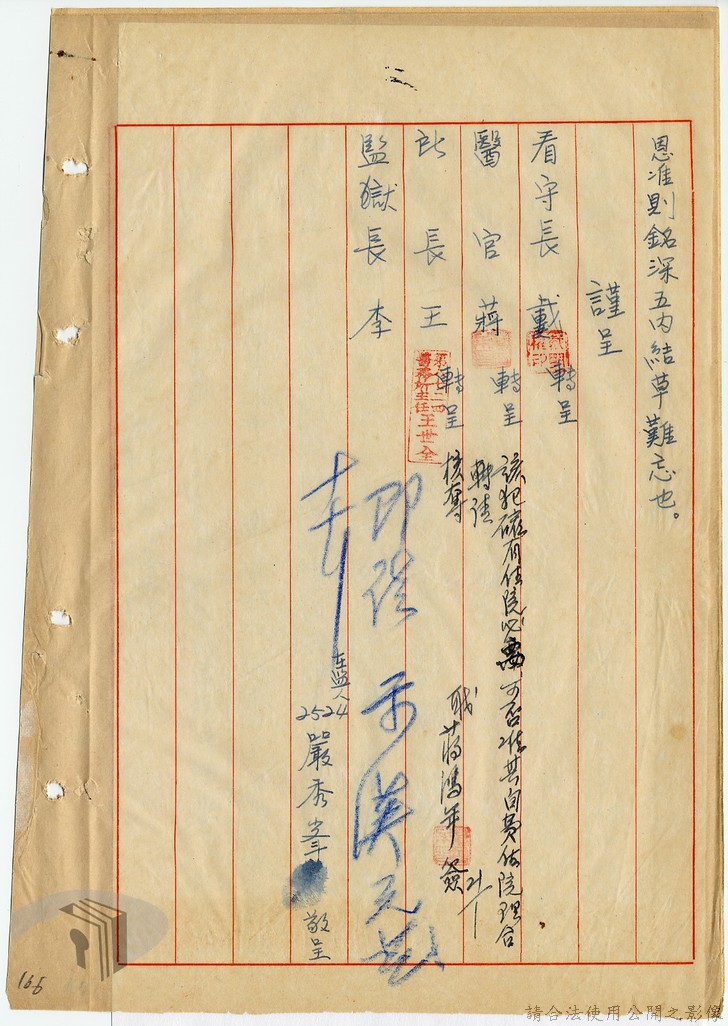 恩准則銘深五內結草難忘也。
謹呈
看守長 戴 轉呈
醫官 蔣 轉呈
所長 王 轉呈
第二四
醫務所主任王世全
監獄長 李
該犯確有住院必需,可否准其自費住院理合
轉請
核奪
職 蔣鴻年 簽
在監人
2524 嚴秀峯 敬呈
166
請合法使用公開之影像